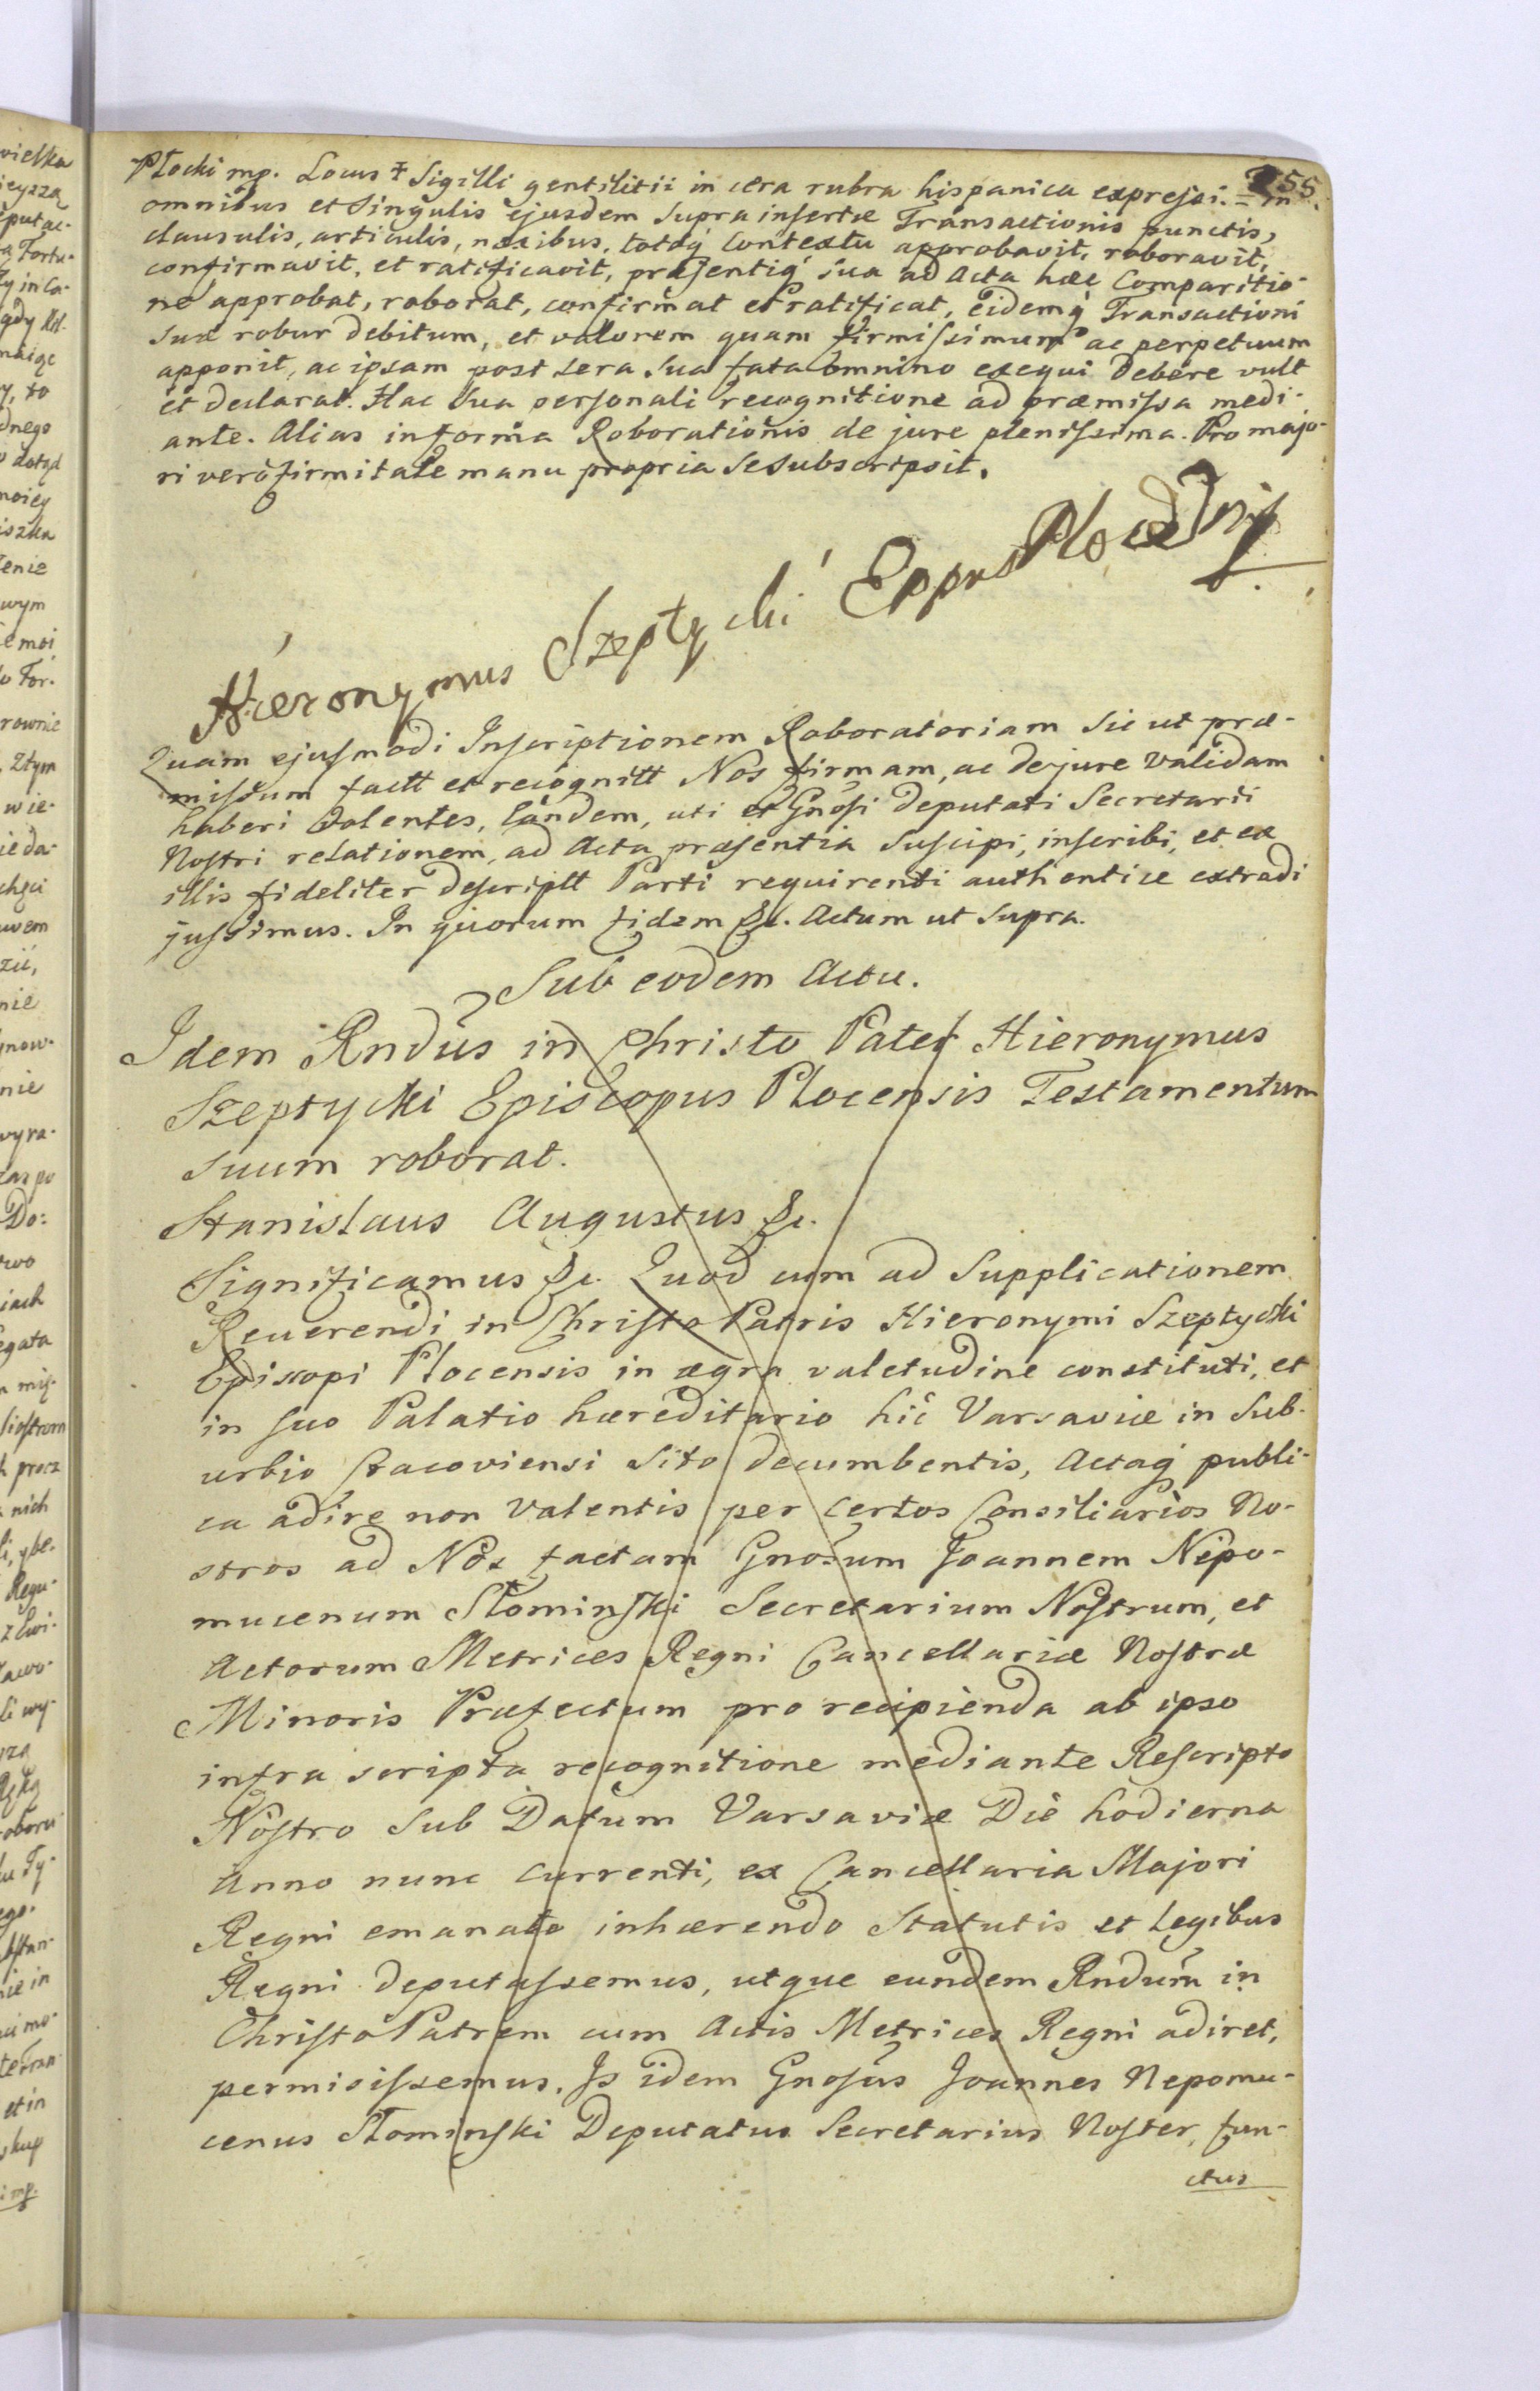 255.
Płocki mp. Locus ‡ Sigilli gentilitii in cera rubra hispanica expressi. = in
omnibus et Singulis ejusdem supra insertæ Transactionis punctis,
clausulis, articulis, nexibus, totoq́ Contextu approbavit, roboravit,
confirmavit, et ratificavit, præsentiq́ sua ad Acta hæc Comparitio-
ne approbat, roborat, confirmat et ratificat, Eidemq́ Transactioni
suæ robur debitum, et valorem quam firmissimum ac perpetuum
apponit, ac ipsam post sera sua fata omnino exequi debere vult
et declarat. Hac Sua personali recognitione ad præmissa medi-
ante. Alias in forma Roborationis de jure plenissima. Pro majo-
ri verò firmitate manu propria se subscripsit.
Hieronymus Szeptycki Eppus Płocki mp
Quam ejusmodi Inscriptionem Roboratoriam Sic ut præ-
missum factt et recognitt Nos firmam, ac de jure validam
haberi Volentes, Eandem, uti et Gnosi deputati Secretarii
Nostri relationem, ad Acta præsentia Suscipi, inscribi, et ex
illis fideliter descriptt Parti requirenti authentice extradi
jussimus. In quorum fidem &c. Actum ut Supra.
Sub eodem Actu.
Idem Rndus in Christo Pater Hieronymus
Szeptycki Episcopus Plocensis Testamentum
suum roborat.
Stanislaus Augustus &c.
Significamus &c. Quod cum ad Supplicationem
Reverendi in Christo Patris Hieronymi Szeptycki
Episcopi Plocensis in ægra valetudine constituti, et
in suo Palatio hæreditario hic Varsaviæ in Sub-
urbio Cracoviensi Sito decumbentis, Actaq́ publi-
ca adire non valentis per certos Consiliarios No-
stros ad Nos factam Gnosum Joannem Nepo-
mucenum Słominski Secretarium Nostrum, et
Actorum Metrices Regni Cancellariæ Nostræ
Minoris Præfectum pro recipienda ab ipso
infra scripta recognitione mediante Rescripto
Nostro Sub Datum Varsaviæ Die hodierna
Anno nunc currenti, ex Cancellaria Majori
Regni emanato inhærendo Statutis et Legibus
Regni deputassemus, utque eundem Rndum in
Christo Patrem cum Actis Metrices Regni adiret,
permisissemus. Is idem Gnosus Joannes Nepomu-
cenus Słominski Deputatus Secretarius Noster, fun-
ctus